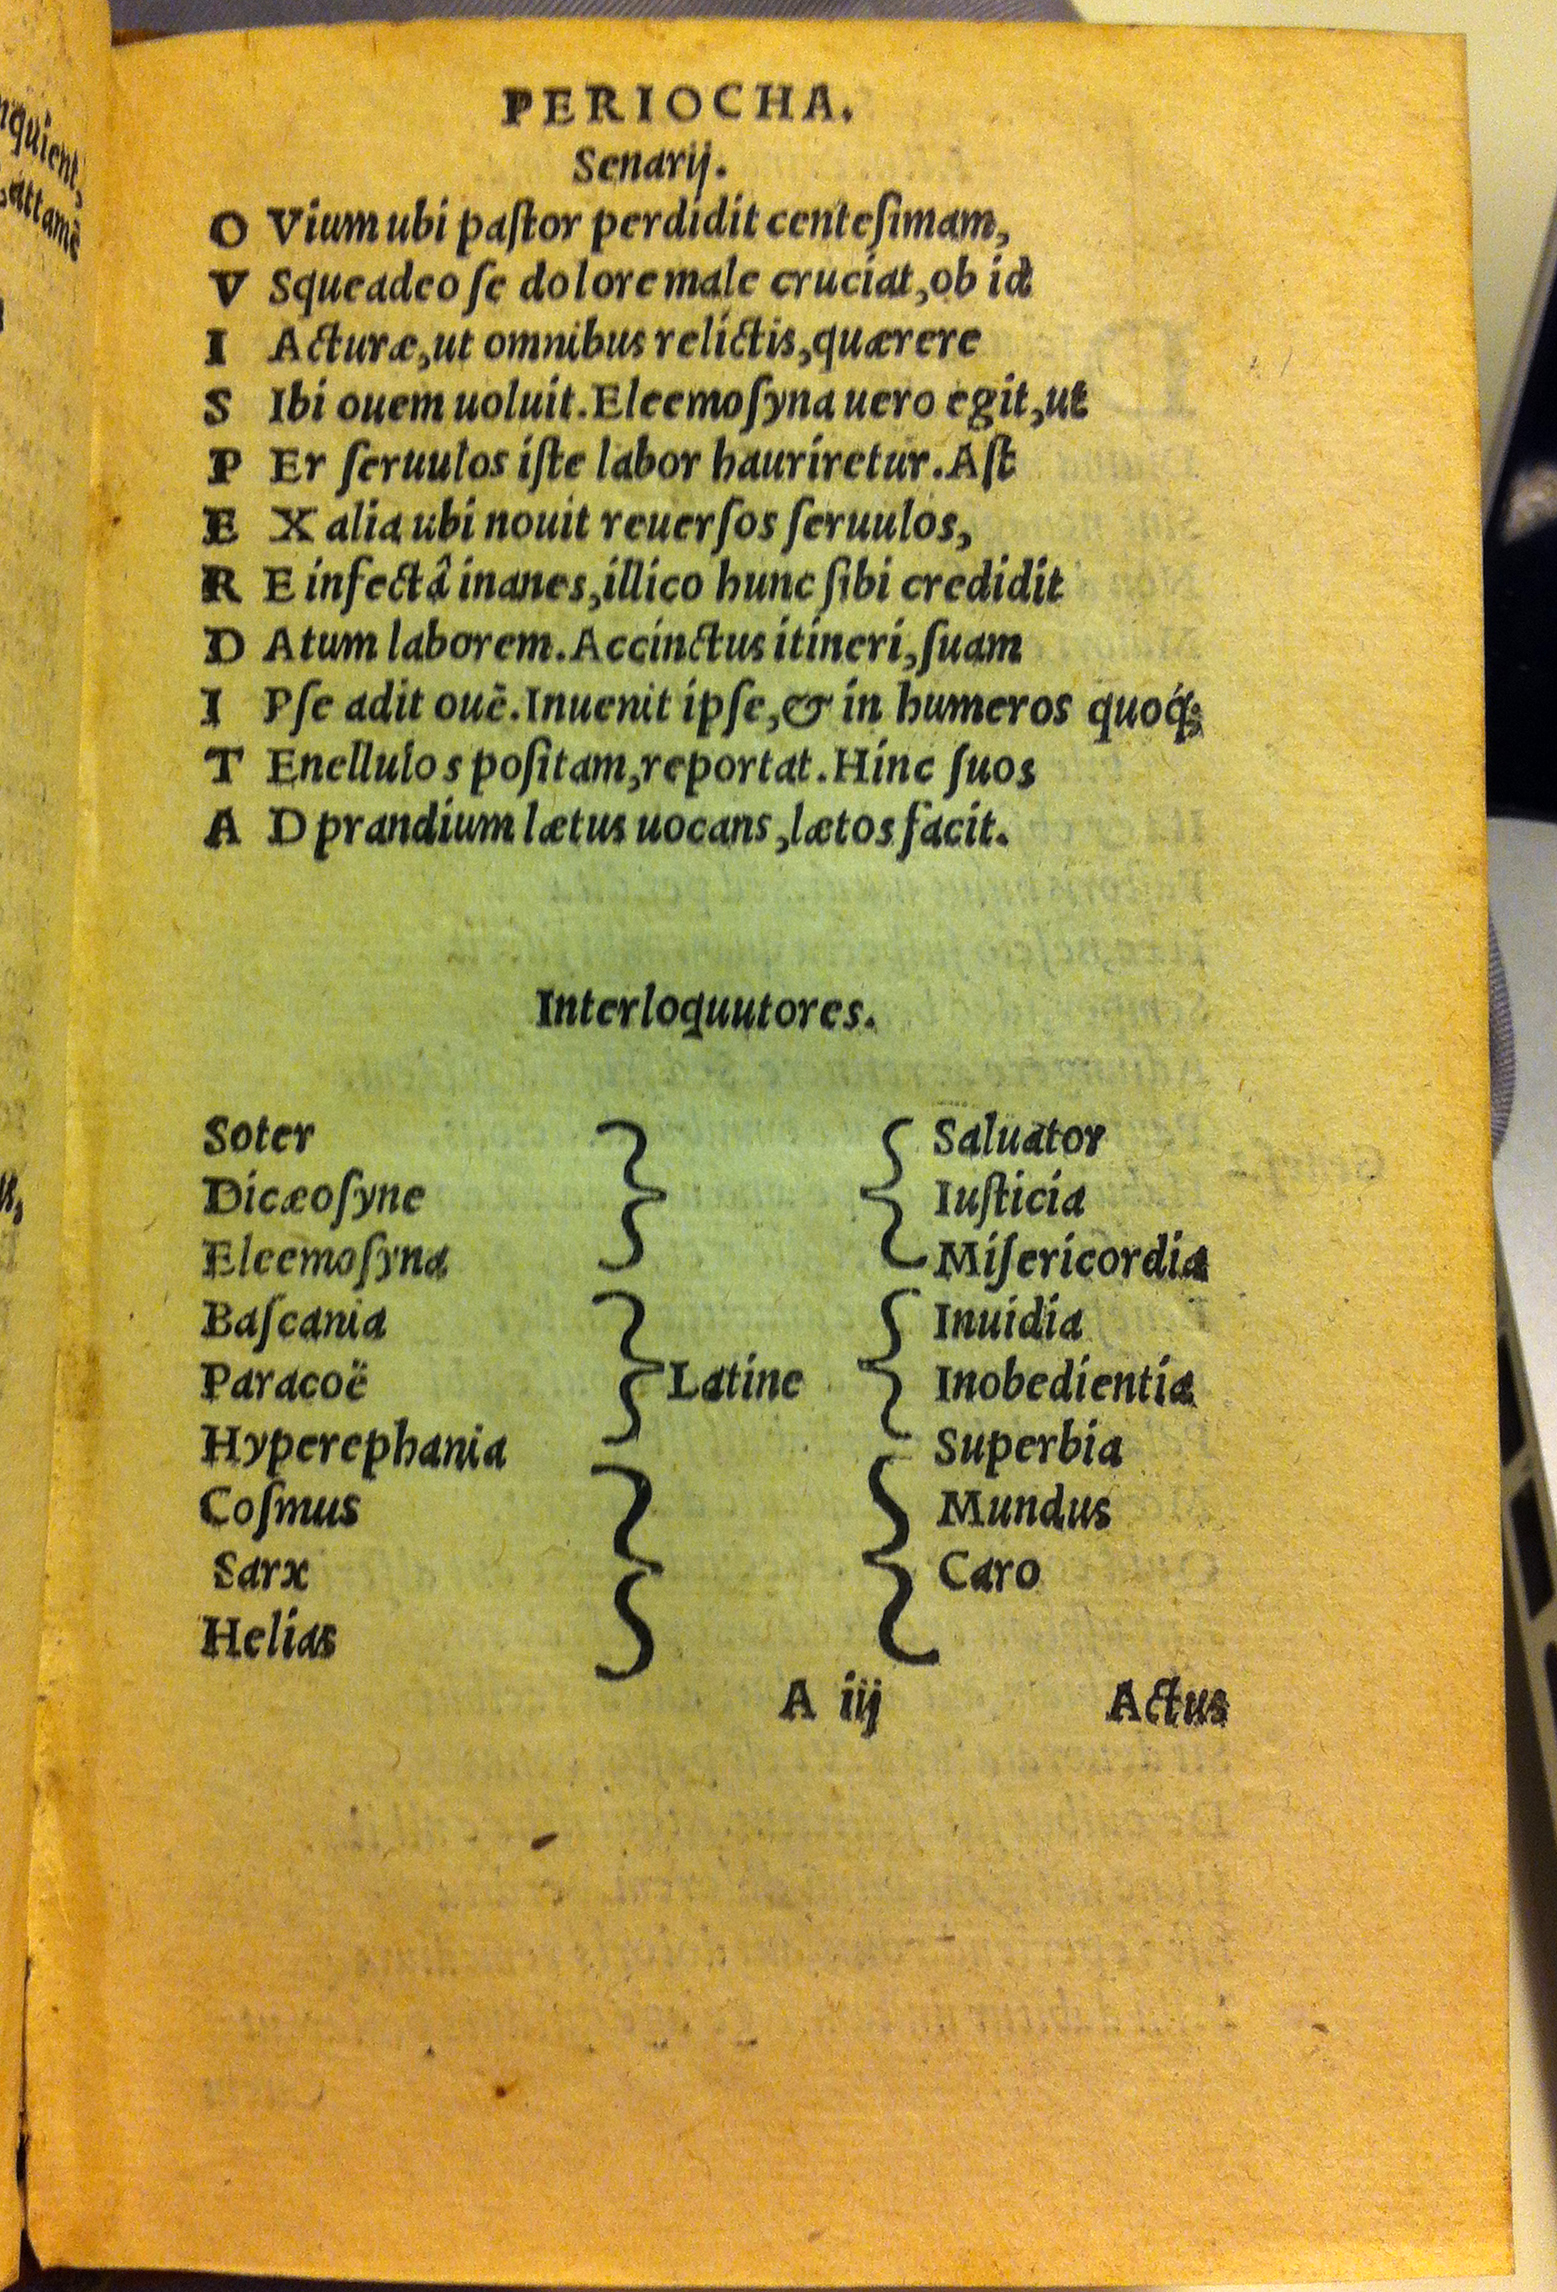 nquient,
attamē
PERIOCHA.
Senarij.
O Vium ubi paſtor perdidit centeſimam,
V Squeadeo ſe dolore male cruciat, ob id
I Acturæ, ut omnibus relictis, quærere
S Ibi ouem uoluit. Eleemoſyna uero egit, ut
P Er ſeruulos iſte labor hauriretur. Aſt
E X alia ubi nouit reuerſos ſeruulos,
R E infectâ inanes, illico hunc ſibi credidit
D Atum laborem. Accinctus itineri, ſuam
I Pſe adit ouē. Inuenit ipſe, & in humeros quoq;
T Enellulos poſitam, reportat. Hinc ſuos
A D prandium lætus uocans, lætos facit.
Interloquutores.
Soter Saluator
Dicæoſyne Iuſticia
Eleemoſyna Miſericordia
Baſcania Inuidia
Paracoë Latine Inobedientia
Hyperephania Superbia
Coſmus Mundus
Sarx Caro
Helias
A iij Actus